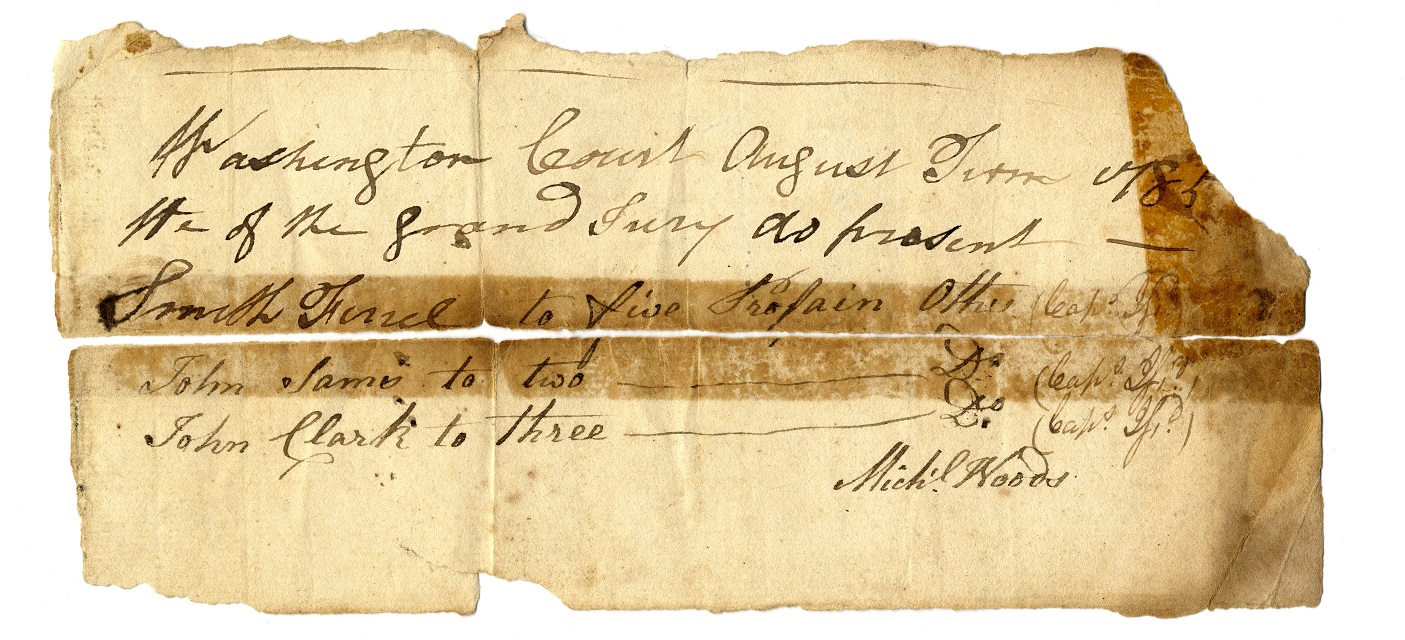 Washington Court August Term 1785
We of the grand Jury do present —
Smith Ferrel to five Profain Othes (Capt.
John to two — Do (Capt.
John Clark to three — Do (Capt.
Michl. Woods